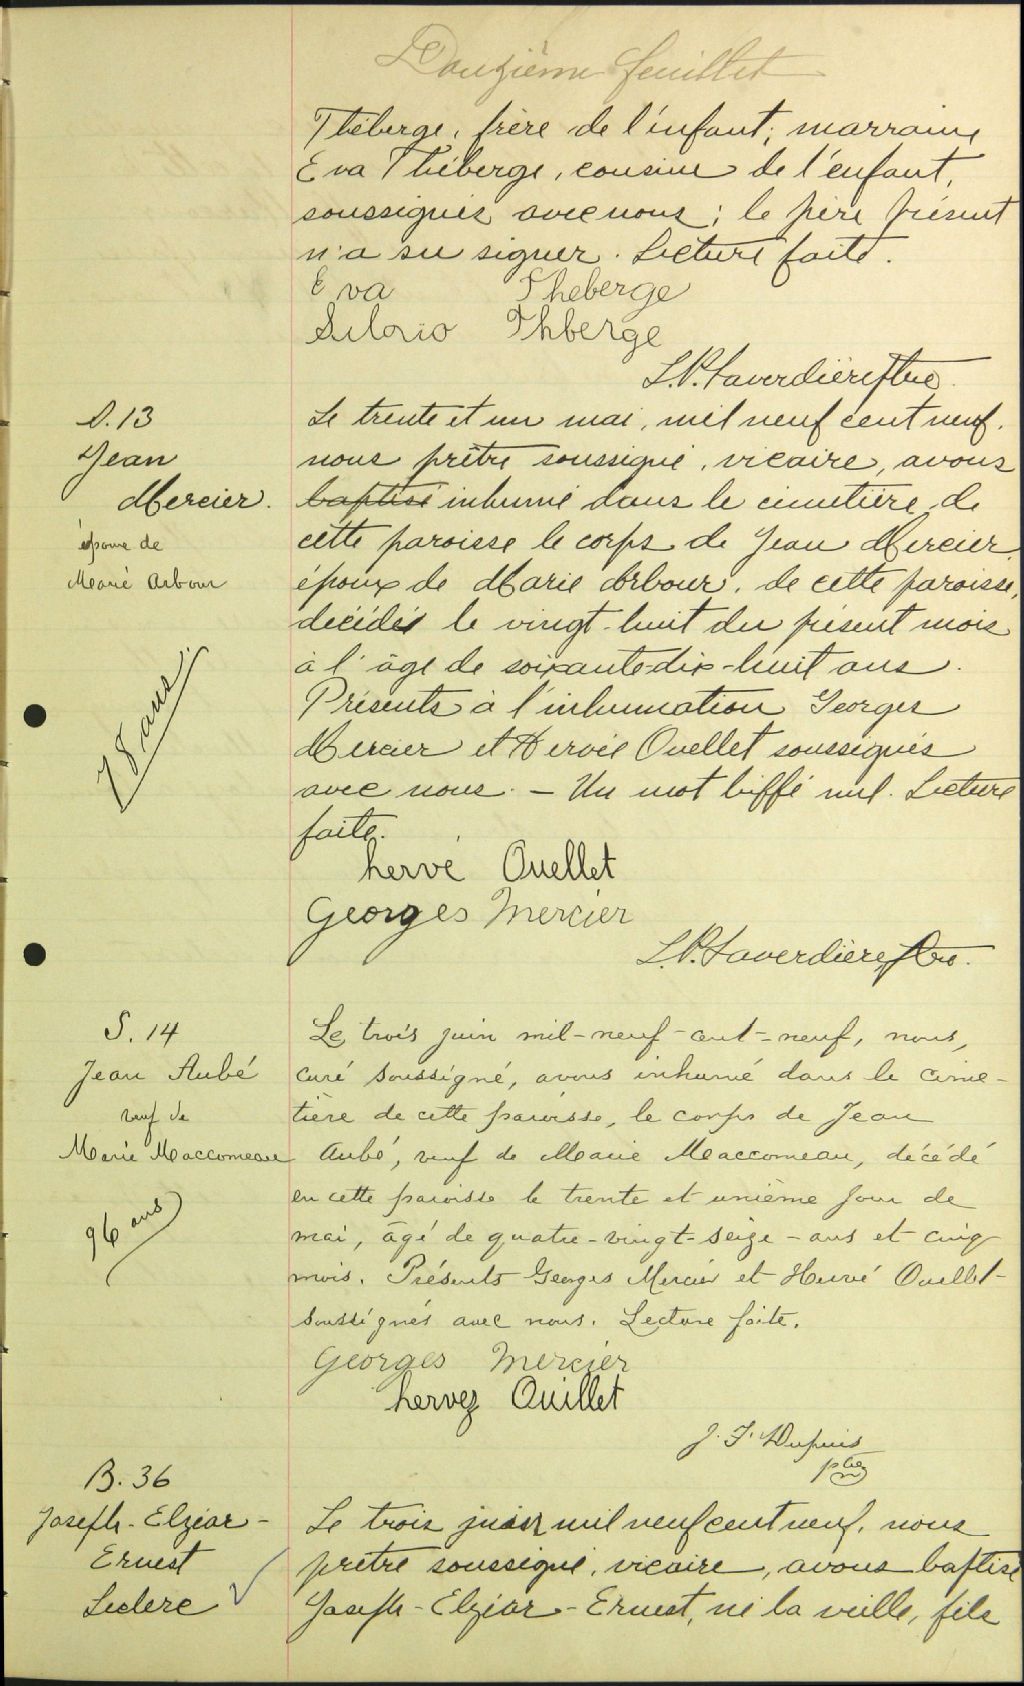 Douzième feuillet
Théberge, frère de l'enfant; marraine
Eva Théberge, cousine de l'enfant,
soussignés avec nous; le père présent
n'a su signer. Lecture faite.
Eva Theberge
Thberge
L.P. Laverdière, Ptre.
S. 13
Jean
Mercier.
époux de
Marie Arbour
78 ans
Le trente et un mai, mil neuf cent neuf,
nous prêtre soussigné, vicaire, avons
baptisé inhumé dans le cimetière de
cette paroisse le corps de Jean Mercier,
époux de Marie Arbour, de cette paroisse,
décédé le vingt-huit du présent mois
à l'âge de soixante-dix-huit ans.
Présents à l'inhumation Georges
Mercier et Hervé Ouellet soussignés
avec nous. — Un mot biffé nul. Lecture
faite.
hervé Ouellet
Georges Mercier
L.P. Laverdière, Ptre.
S. 14
Jean Aubé
veuf de
Marie Maccomeau
96 ans
Le trois juin mil-neuf-cent-neuf, nous,
curé soussigné, avons inhumé dans le cime-
tière de cette paroisse, le corps de Jean
Aubé, veuf de Marie Maccomeau, décédé
en cette paroisse le trente et unième jour de
mai, âgé de quatre-vingt-seize-ans et cinq
mois. Présents Georges Mercier et Hervé Ouellet-
soussignés avec nous. Lecture faite.
Georges Mercier
hervez Ouillet
J. F. Dupuis
ptre
B. 36
Joseph-Elzéar-
Ernest
Leclerc
Le trois juin mil neuf cent neuf, nous
prêtre soussigné, vicaire, avons baptisé
Joseph-Elzéar-Ernest, né la veille, fils